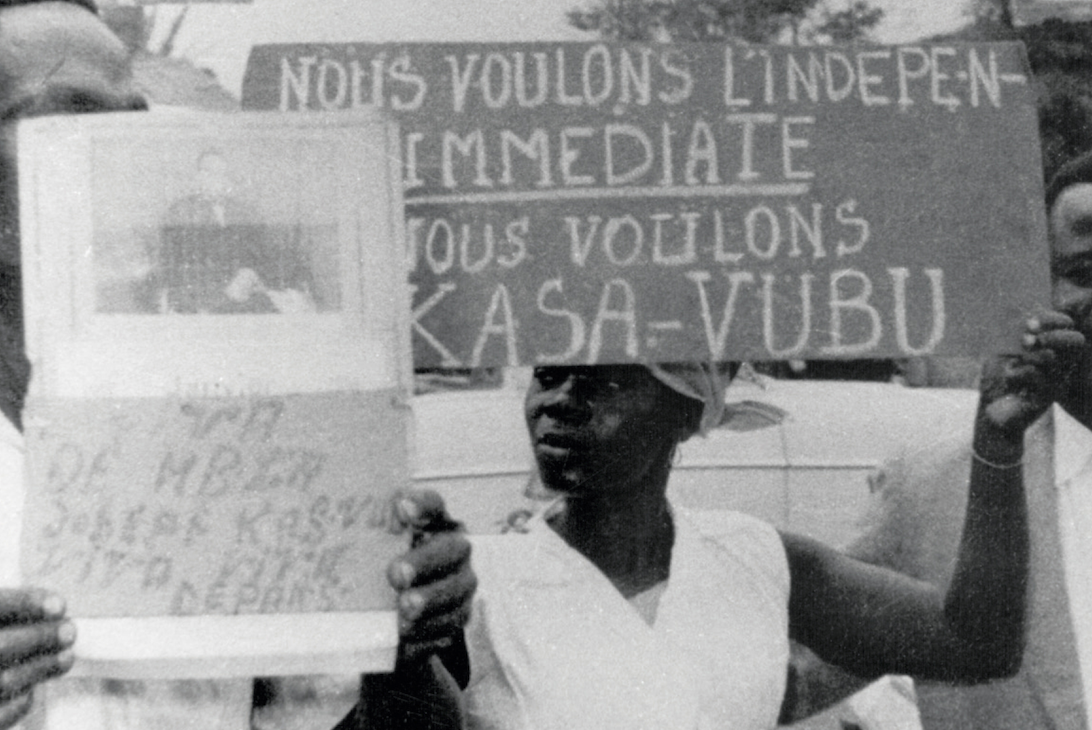 NOUS VOULONS L'INDEPEN-
IMMEDIATE
NOUS VOULONS
KASA-VUBU
DE MBER
JOSEPH KASVU
VIVA
DEPANS